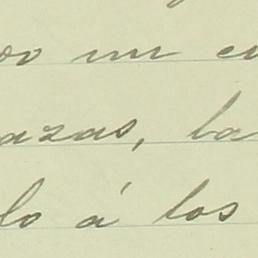 oo un cu
azas, ba
lo á los